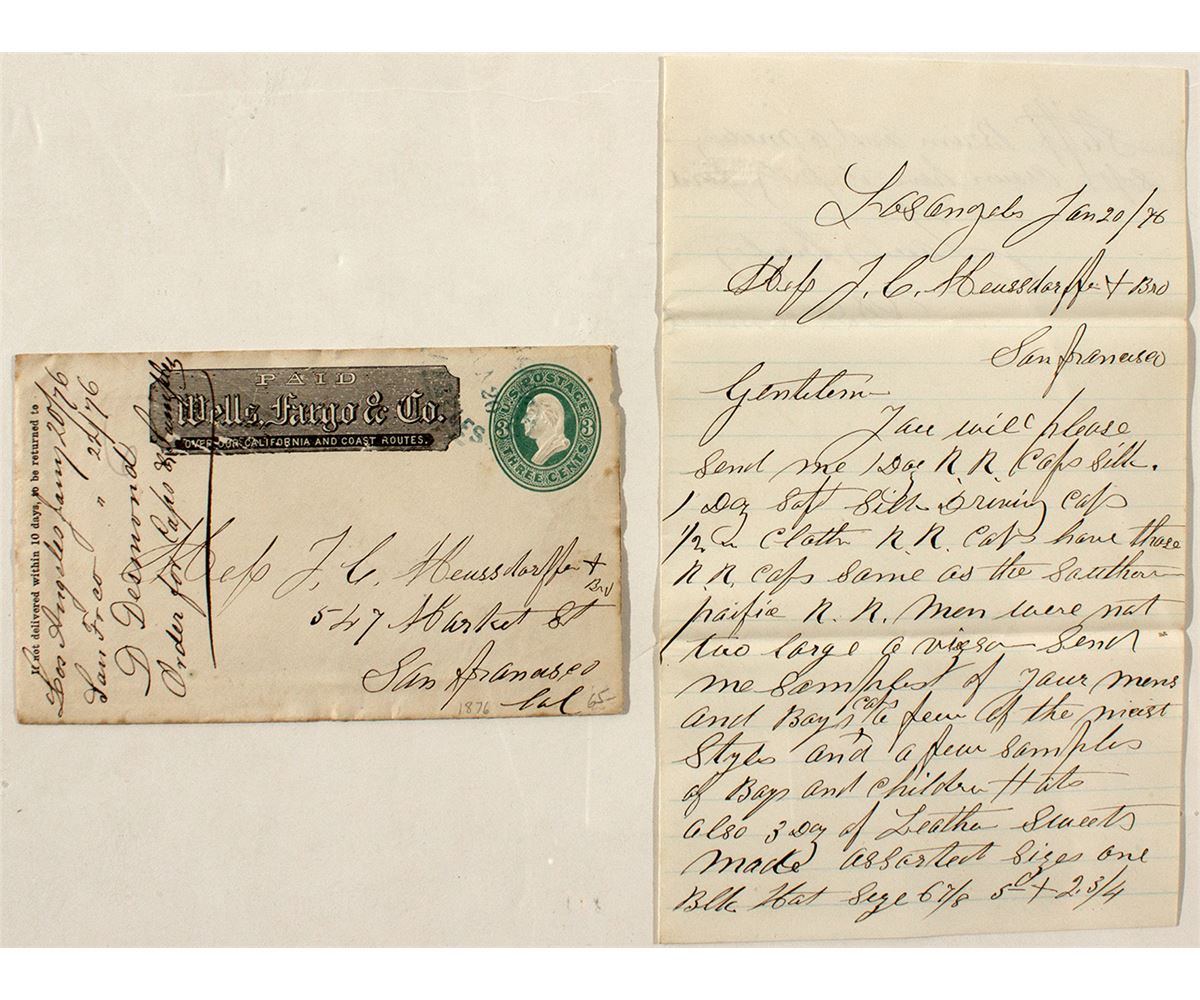 If not delivered within 10 days, to be returned to
Los Angeles Jany 20/76
San Fr co " 22/76
D Desmond
Order for Caps & Samples
PAID
Wells, Fargo & Co.
OVER OUR CALIFORNIA AND COAST ROUTES.
U.S. POSTAGE
3 3
THREE CENTS
Mess J. C. Meussdorffer + Bro
547 Market St
San francisco
Cal
1876
65
Los angels Jan 20/76
Mess J. C. Meussdorffer + Bro
San francisco
Gentlem
You will please
send me 1 Doz R R Caps silk.
1 Doz soft silk Driving caps
1/2 " Cloth R. R. Caps have those
R R. caps same as the southern
pacific R. R. men were not
two large a vizsor send
me samples of your mens
and Boy's caps a few of the nicest
styles and a few samples
of Boys and children Hats
also 3 Doz of Leather sweets
made assorted sizes one
Blk Hat size 6 7/8 5 + 2 3/4